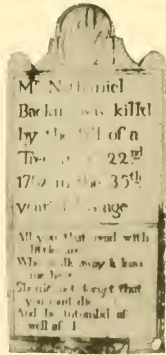 Mr Nathaniel
Backus was killd
by the fall of a
Tree 22nd
17 in the 35th
year age
All you that read with
little care
Who walk away & leave
me here
Should not forget that
you must die
And be intombd as
well as I